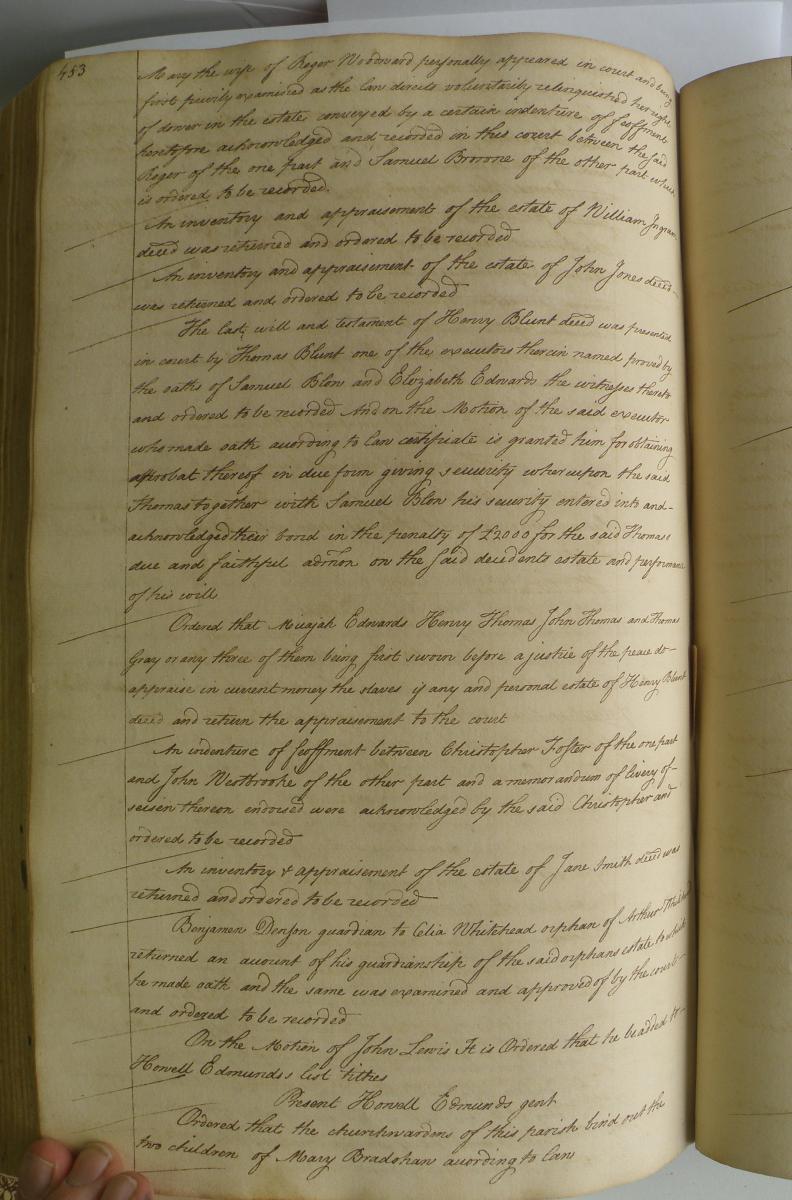 453
Mary the wife of Roger Woodward personally appeared in court and being
first privily examined as the law directs voluntarily relinquished her right
of dower in the estate conveyed by a certain indenture of feoffment
heretofore acknowledged and recorded in this court between the said
Roger of the one part and Samuel Browne of the other part which
is ordered to be recorded.
An inventory and appraisement of the estate of William Ingram
deced was returned and ordered to be recorded
An inventory and appraisement of the estate of John Jones deced
was returned and ordered to be recorded
The last will and testament of Henry Blunt deced was presented
in court by Thomas Blunt one of the executors therein named proved by
the oaths of Samuel Blow and Elizabeth Edwards the witnesses thereto
and ordered to be recorded And on the Motion of the said executor
who made oath according to law certificate is granted him for obtaining
a probat thereof in due form giving security whereupon the said
Thomas together with Samuel Blow his security entered into and
acknowledged their bond in the penalty of £2000 for the said Thomas's
due and faithful admon on the said decedents estate and performance
of his will
Ordered that Micajah Edwards Henry Thomas John Thomas and Thomas
Gray or any three of them being first sworn before a justice of the peace do
appraise in current money the slaves if any and personal estate of Henry Blunt
deced and return the appraisement to the court
An indenture of feoffment between Christopher Foster of the one part
and John Westbrooke of the other part and a memorandum of livery of
seisen thereon endorsed were acknowledged by the said Christopher and
ordered to be recorded
An inventory & appraisement of the estate of Jane Smith deced was
returned and ordered to be recorded
Benjamen Denson guardian to Celia Whitehead orphan of Arthur Whitehead
returned an account of his guardianship of the said orphans estate to which
he made oath and the same was examined and approved of by the court
and ordered to be recorded
On the Motion of John Lewis It is Ordered that he be added to
Howell Edmunds's list tithes
Present Howell Edmunds gent
Ordered that the churchwardens of this parish bind out the
two children of Mary Bradshaw according to law